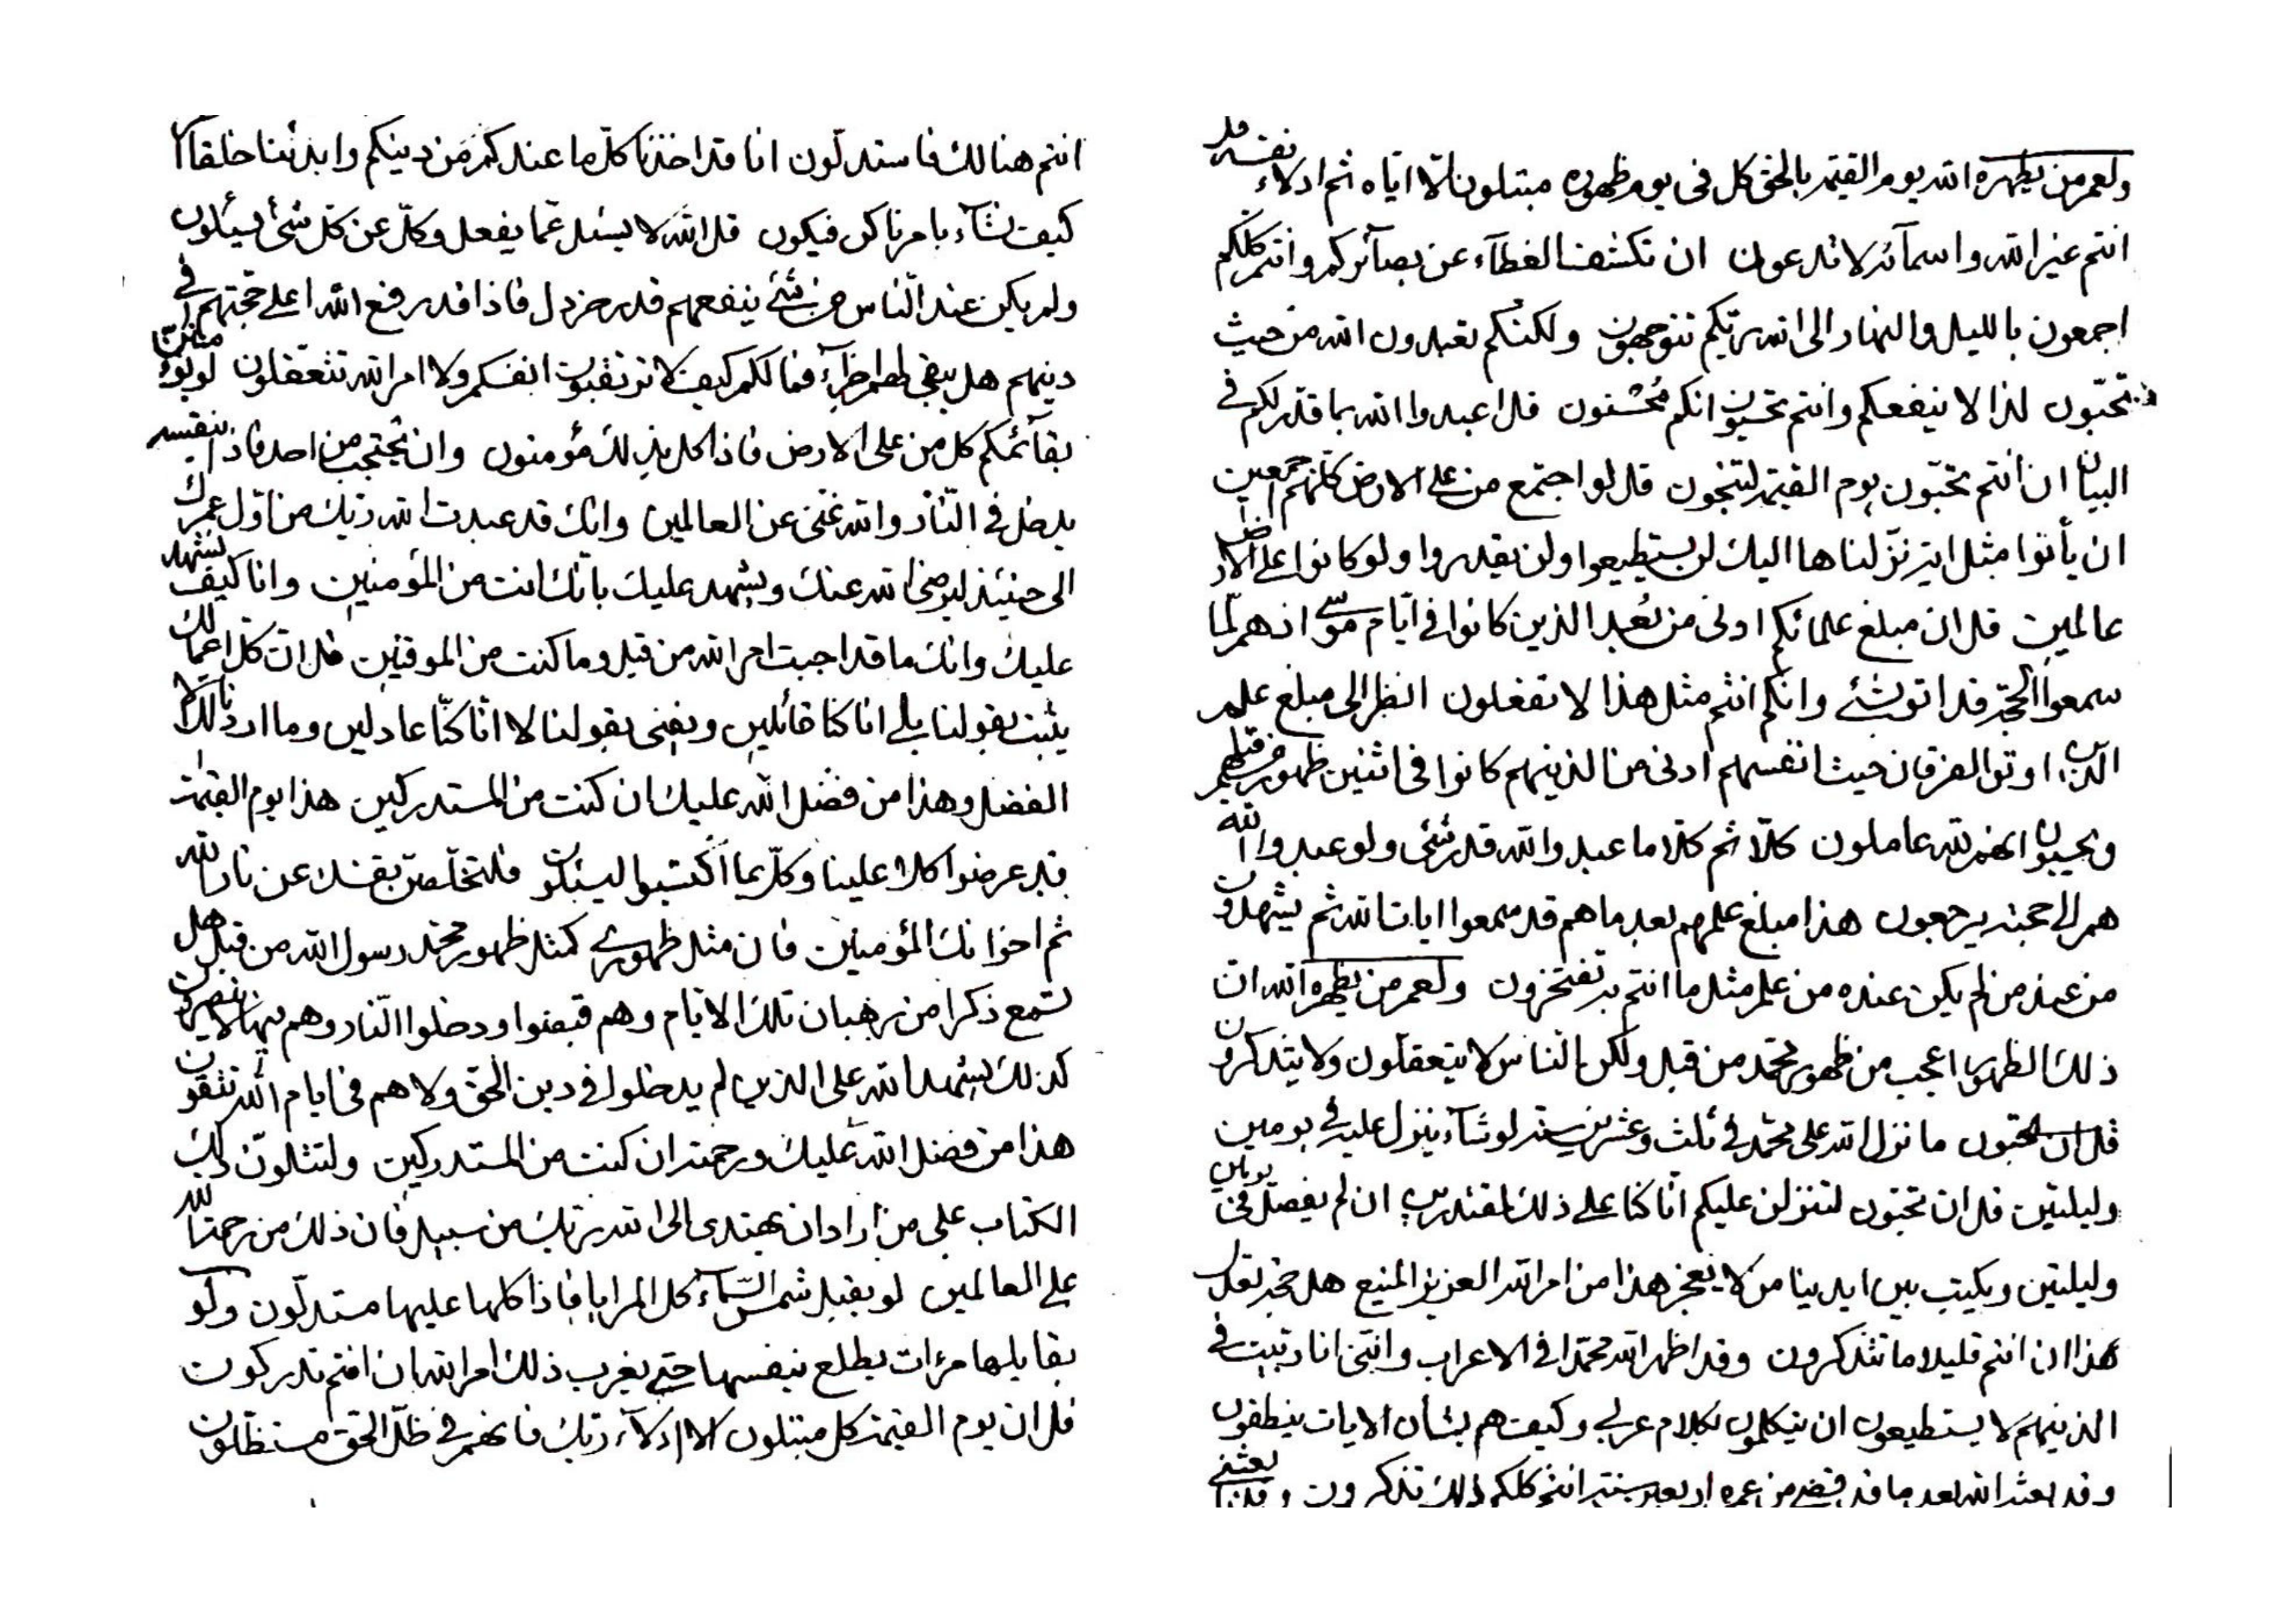 ولعمر من يظهره الله يوم القيمة بالحق كل فى يوم ظهوره مبتلون الا اياه ثم ادلاء نفسه قل
انتم غير الله واسمائه لا تدعون ان نكشف الغطآء عن بصآئركم وانتم كلكم
اجمعون بالليل والنهار الى الله ربكم تتوجهون ولكنكم تعبدون الله من حيث
تحبون لذا لا ينفعكم وانتم تحسبون انكم محسنون قل اعبدوا الله بما قدر لكم فى
البيان ان انتم تحبون يوم القيمة لتنجون قل لو اجتمع من على الارض كلهم اجمعين
ان يأتوا بمثل اية نزلناها اليك لن يستطيعوا ولن يقدروا ولو كانوا على الارض
عالمين قل ان مبلغ علمائكم ادنى من الذين كانوا فى ايام موسى اذ هم لما
سمعوا الحجة قد اتو بشئ وانكم انتم مثل هذا لا تفعلون انظر الى مبلغ علم
الذين اوتو الفرقان حيث انفسهم ادنى من الذينهم كانوا فى اثنين ظهور من قبلهم
ويحسبون انهم لله عاملون كلا ثم كلا ما عبدوا لله قدر شئ ولو عبدوا الله
هم الى حجته يرجعون هذا مبلغ علمهم بعد ما هم قد سمعوا ايات الله ثم يشهدون
من عند من لم يكن عنده من علم مثل ما انتم به تفتخرون ولعمر من يظهره الله ان
ذلك الظهور اعجب من ظهور محمد من قبل ولكن الناس لا يتعقلون ولا يتذكرون
قل ان ما نزل الله على محمد فى ثلث وعشرين سنة لو شآء ينزل عليه فى يومين
وليلتين قل ان تحبون لننزلن عليكم انا كنا على ذلك لمقتدرين ان لم يفصل فى يومين
وليلتين ويكتب بين ايدينا من لا يعجز هذا من امر الله العزيز المنيع هل
هذا ان انتم قليلا ما تتذكرون وقد اظهر الله محمدا فى الاعراب وانى انا ربيت فى
الذينهم لا يستطيعون ان يتكلمون بكلام عربى وكيف هم بشأن الايات ينطقون
وقد بعثه الله بعد ما قد قضى من عمره اربعين سنة انتم كلكم ذلك تذكرون وقد بعثنى
انتم هنالك فاستدلون انا قد اخذنا كل ما عندكم من دينكم وابدئنا خلقا
كيف نشآء بامرنا كن فيكون قل الله لا يسئل عما يفعل وكل عن كل شئ يسئلون
ولم يكن عند الناس من شئ ينفعهم قدر خردل فاذا قد رفع الله اعلى حجتهم فى
دينهم هل يبقى لهم فما لكم كيف لا ترتقبون انفسكم ولا امر الله تتعقلون لو
بقآئمكم كل من على الارض فاذا كل بذلك مؤمنون وان يحتجب من احد فاذا بنفسه
يدخل فى النار والله غنى عن العالمين وانك قد عبدت الله ربك من اول عمرك
الى حينئذ ليرضى الله عنك ويشهد عليك بانك انت من المؤمنين وانا كيف نشهد
عليك وانك ما قد اجبت امر الله من قبل وما كنت من الموقنين قل ان كل اعمالك
يثبت بقولنا بلى انا كنا قائلين ويفنى بقولنا لا انا كنا عادلين وما اردنا لك الا
الفضل وهذا من فضل الله عليك ان كنت من المستدركين هذا يوم القيمة
قد عرضوا كل علينا وكل بما اكتسبوا ليسئلون فلتخلصن نفسك عن نار الله
ثم اخوانك المؤمنين فان مثل ظهورى كمثل ظهور محمد رسول الله من قبل هل
تسمع ذكرا من رهبان تلك الايام وهم قبضوا ودخلوا النار وهم فيها لا ينصرون
كذلك يشهد الله على الذين لم يدخلوا فى دين الحق ولا هم فى ايام الله تتقون
هذا من فضل الله عليك ورحمته ان كنت من المستدركين ولتتلون ذلك
الكتاب على من اراد ان يهتدى الى الله ربك من سبيل فان ذلك من رحمة الله
على العالمين لو يقبل شمس السمآء كل المرايا فاذا كلها عليها مستدلون ولو
يقابلها مرءات يطلع بنفسها حتى يغرب ذلك امر الله ان انتم تدركون
قل ان يوم القيمة كل مبتلون الا ادلآء ربك فانهم فى ظل الحق مستظلون